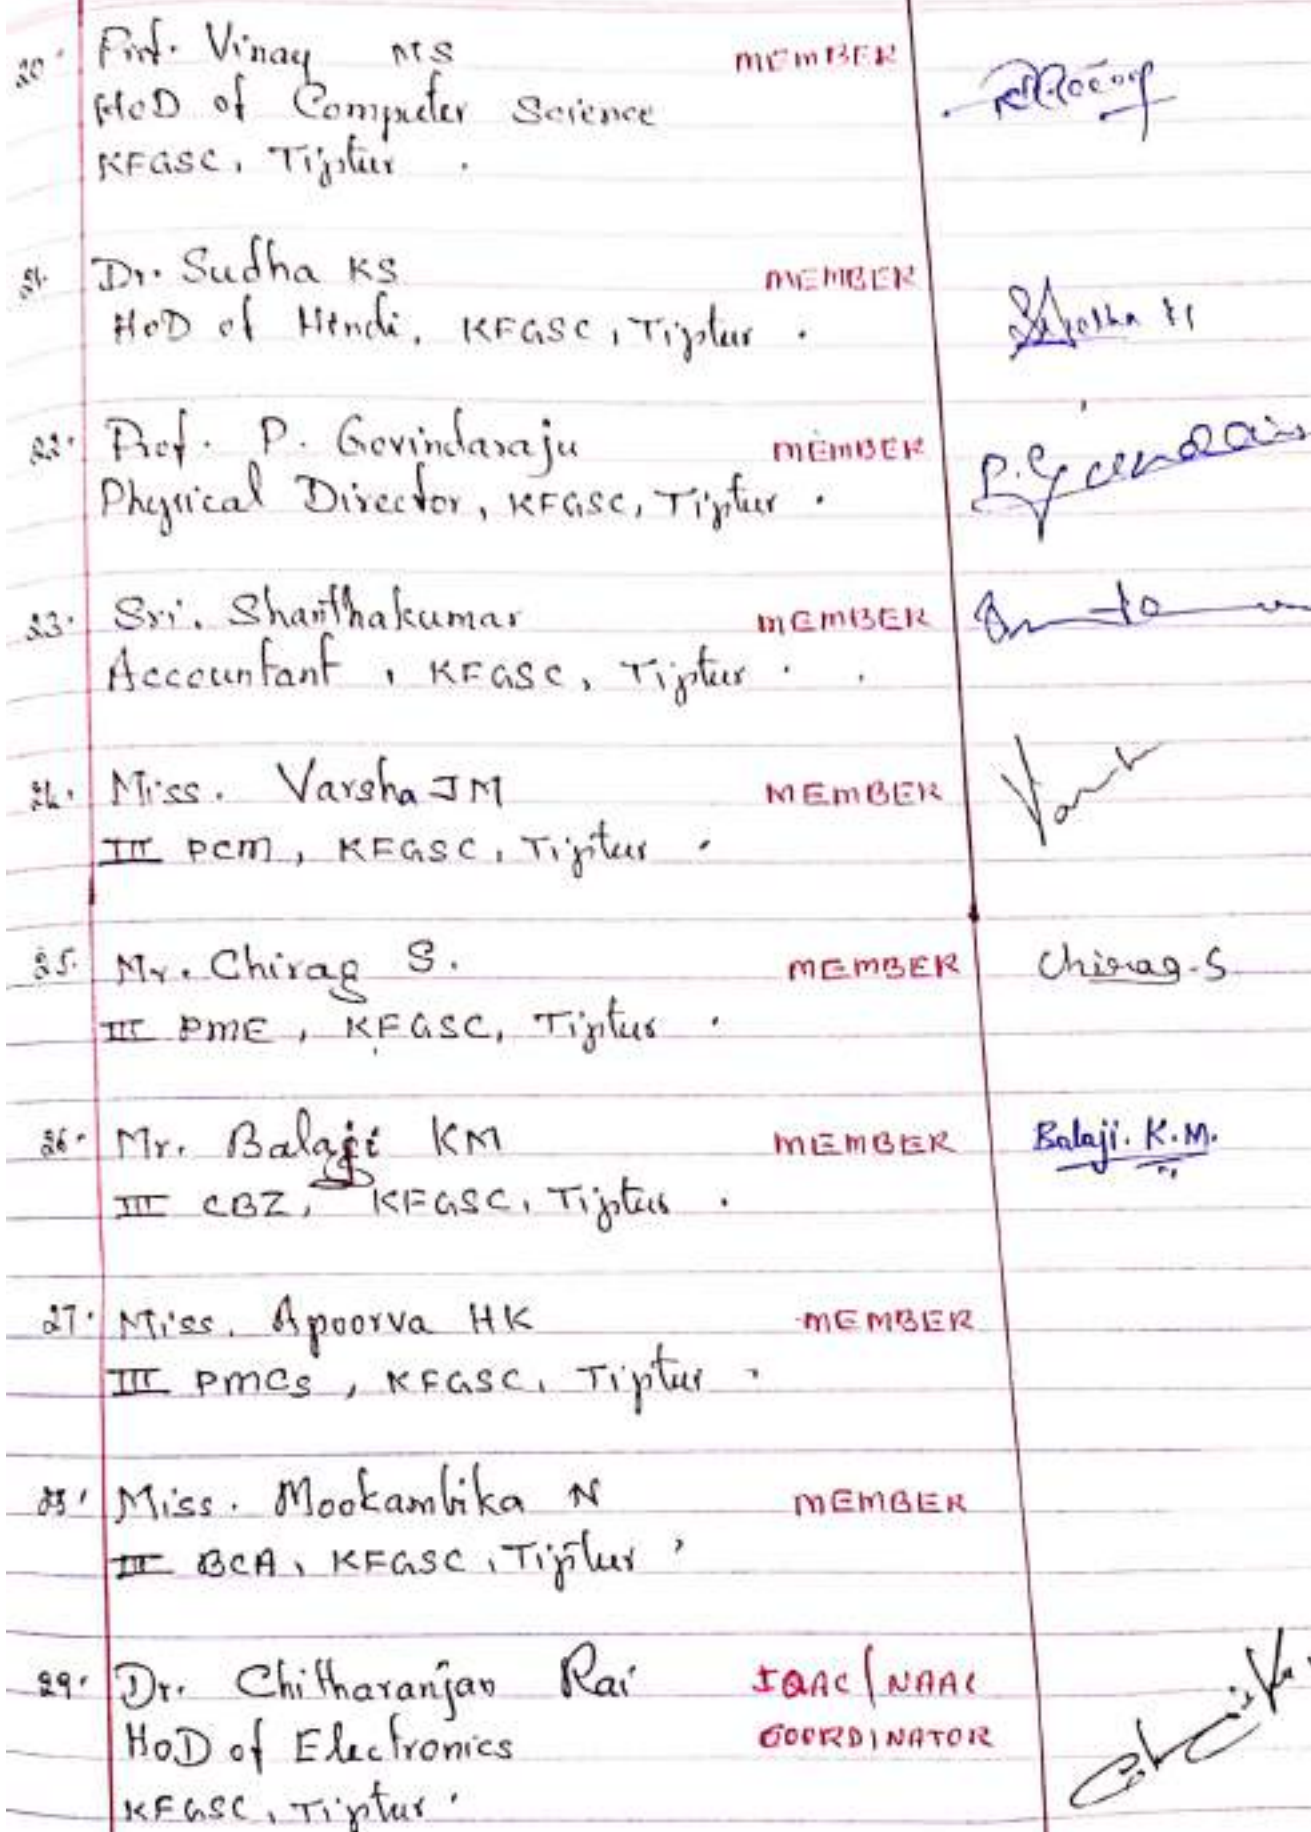 20. Prof. Vinay MS MEMBER
HoD of Computer Science
KFGSC, Tiptur.
21. Dr. Sudha KS MEMBER
HoD of Hindi, KFGSC, Tiptur.
22. Prof. P. Govindaraju MEMBER
Physical Director, KFGSC, Tiptur.
23. Sri. Shanthakumar MEMBER
Accountant, KFGSC, Tiptur.
24. Miss. Varsha JM MEMBER
III PCM, KFGSC, Tiptur.
25. Mr. Chirag S. MEMBER Chirag-S
III PME, KFGSC, Tiptur.
26. Mr. Balaji KM MEMBER Balaji. K.M.
III CBZ, KFGSC, Tiptur.
27. Miss. Apoorva HK MEMBER
III PMCs, KFGSC, Tiptur.
28. Miss. Mookambika N MEMBER
III BCA, KFGSC, Tiptur.
29. Dr. Chittharanjan Rai IQAC/NAAC
HoD of Electronics COORDINATOR
KFGSC, Tiptur.